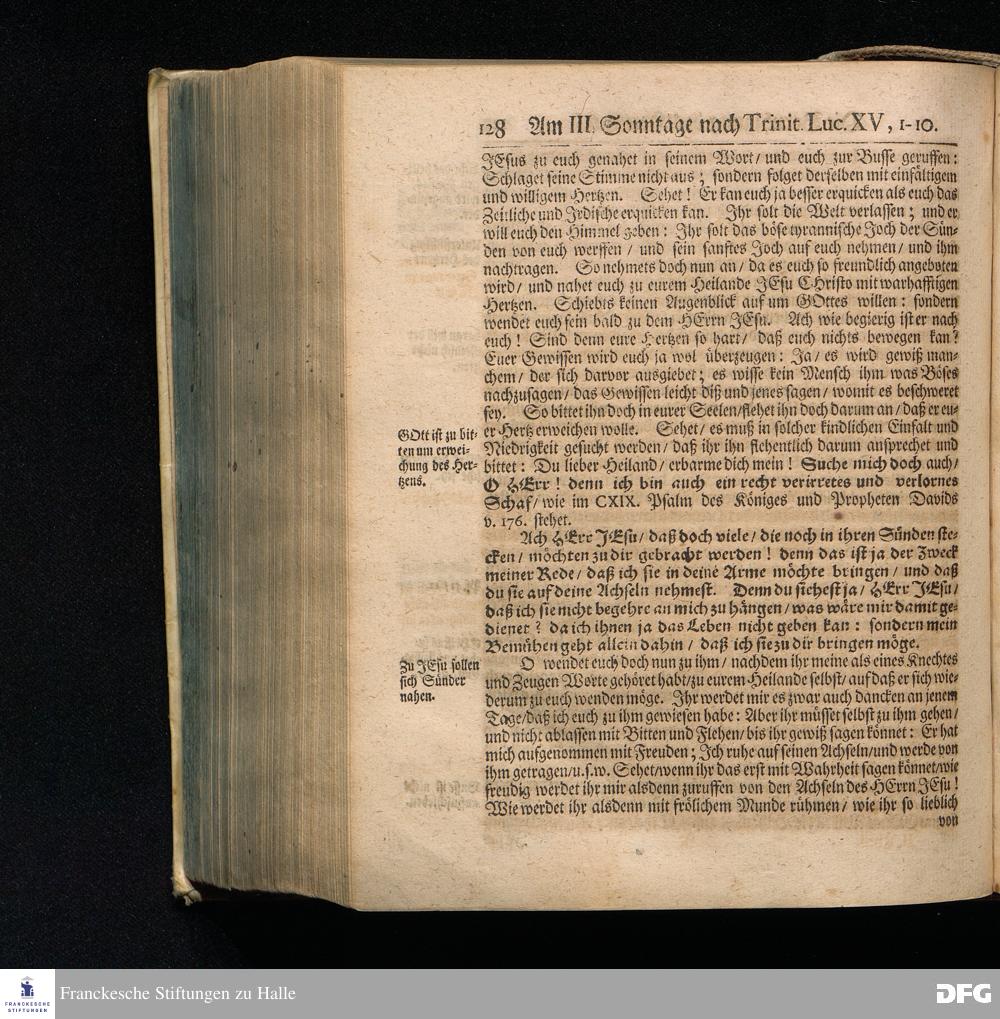 128 Am III. Sonntage nach Trinit. Luc. XV, 1-10.
JEsus zu euch genahet in seinem Wort / und euch zur Busse geruffen:
Schlaget seine Stimme nicht aus; sondern folget derselben mit einfältigem
und willigem Hertzen. Sehet! Er kan euch ja besser erquicken als euch das
Zeitliche und Irdische erquicken kan. Ihr solt die Welt verlassen; und er
will euch den Himmel geben: Ihr solt das böse tyrannische Joch der Sün-
den von euch werffen / und sein sanftes Joch auf euch nehmen / und ihm
nachtragen. So nehmets doch nun an / da es euch so freundlich angeboten
wird / und nahet euch zu eurem Heilande JEsu CHristo mit warhafftigen
Hertzen. Schiebts keinen Augenblick auf um GOttes willen: sondern
wendet euch fein bald zu dem HErrn JEsu. Ach wie begierig ist er nach
euch! Sind denn eure Hertzen so hart / daß euch nichts bewegen kan?
Euer Gewissen wird euch ja wol überzeugen: Ja / es wird gewiß man-
chem / der sich darvor ausgiebet; es wisse kein Mensch ihm was Böses
nachzusagen / das Gewissen leicht diß und jenes sagen / womit es beschweret
sey. So bittet ihn doch in eurer Seelen / flehet ihn doch darum an / daß er eu-
er Hertz erweichen wolle. Sehet / es muß in solcher kindlichen Einfalt und
Niedrigkeit gesucht werden / daß ihr ihn flehentlich darum ansprechet und
bittet: Du lieber Heiland / erbarme dich mein! Suche mich doch auch /
O HErr! denn ich bin auch ein recht verirretes und verlornes
Schaf / wie im CXIX. Psalm des Königes und Propheten Davids
v. 176. stehet.
GOtt ist zu bit-
ten um erwei-
chung des Her-
tzens.
Ach HErr JEsu / daß doch viele / die noch in ihren Sünden ste-
cken / möchten zu dir gebracht werden! denn das ist ja der Zweck
meiner Rede / daß ich sie in deine Arme möchte bringen / und daß
du sie auf deine Achseln nehmest. Denn du siehest ja / HErr JEsu /
daß ich sie nicht begehre an mich zu hängen / was wäre mir damit ge-
dienet? da ich ihnen ja das Leben nicht geben kan: sondern mein
Bemühen geht allein dahin / daß ich sie zu dir bringen möge.
Zu JEsu sollen
sich Sünder
nahen.
O wendet euch doch nun zu ihm / nachdem ihr meine als eines Knechtes
und Zeugen Worte gehöret habt / zu eurem Heilande selbst / auf daß er sich wie-
derum zu euch wenden möge. Ihr werdet mir es zwar auch dancken an jenem
Tage / daß ich euch zu ihm gewiesen habe: Aber ihr müsset selbst zu ihm gehen /
und nicht ablassen mit Bitten und Flehen / bis ihr gewiß sagen könnet: Er hat
mich aufgenommen mit Freuden; Ich ruhe auf seinen Achseln / und werde von
ihm getragen / u.s.w. Sehet / wenn ihr das erst mit Wahrheit sagen könnet / wie
freudig werdet ihr mir alsdenn zuruffen von den Achseln des HErrn JEsu!
Wie werdet ihr alsdenn mit frölichem Munde rühmen / wie ihr so lieblich
von
FRANCKESCHE
STIFTUNGEN
Franckesche Stiftungen zu Halle
DFG